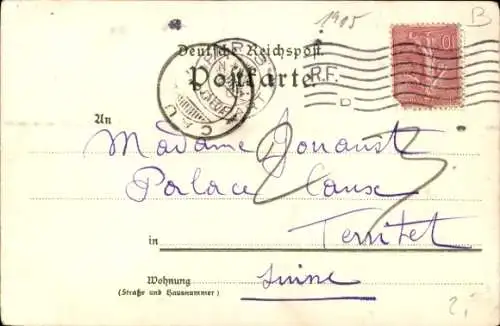 1905
B
Deutsche Reichspost.
Postkarte
R.F.
An
Madame Jouaust
Palace Caux
in Territet
Wohnung Suisse
(Straße und Hausnummer)